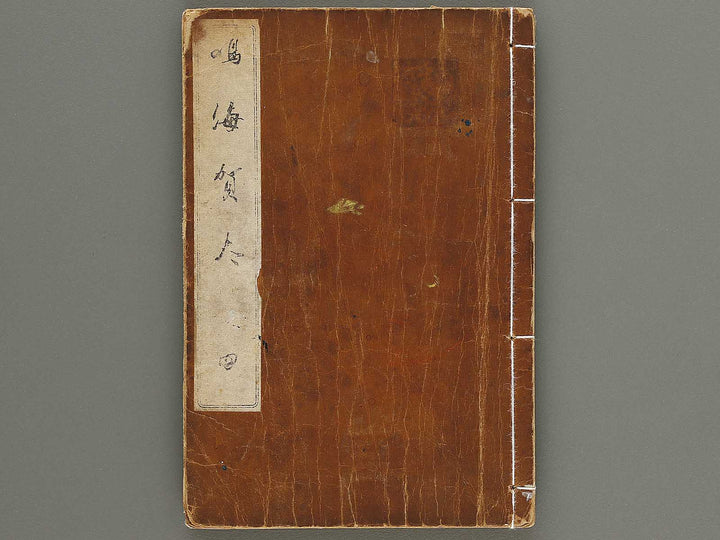 鳴海賀太 四